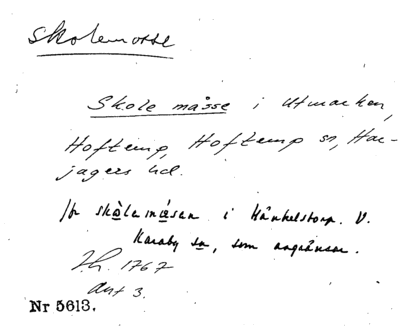 Skolemosse
Skole måsse i Utmarken,
Hoftemp, Hoftemp sn, Har-
jagers hd.
/fr skòlemåsen i Hånkelstorp. V.
Karaby sn, som angränsar.
Jh. 1767
akt 3.
Nr 5613.